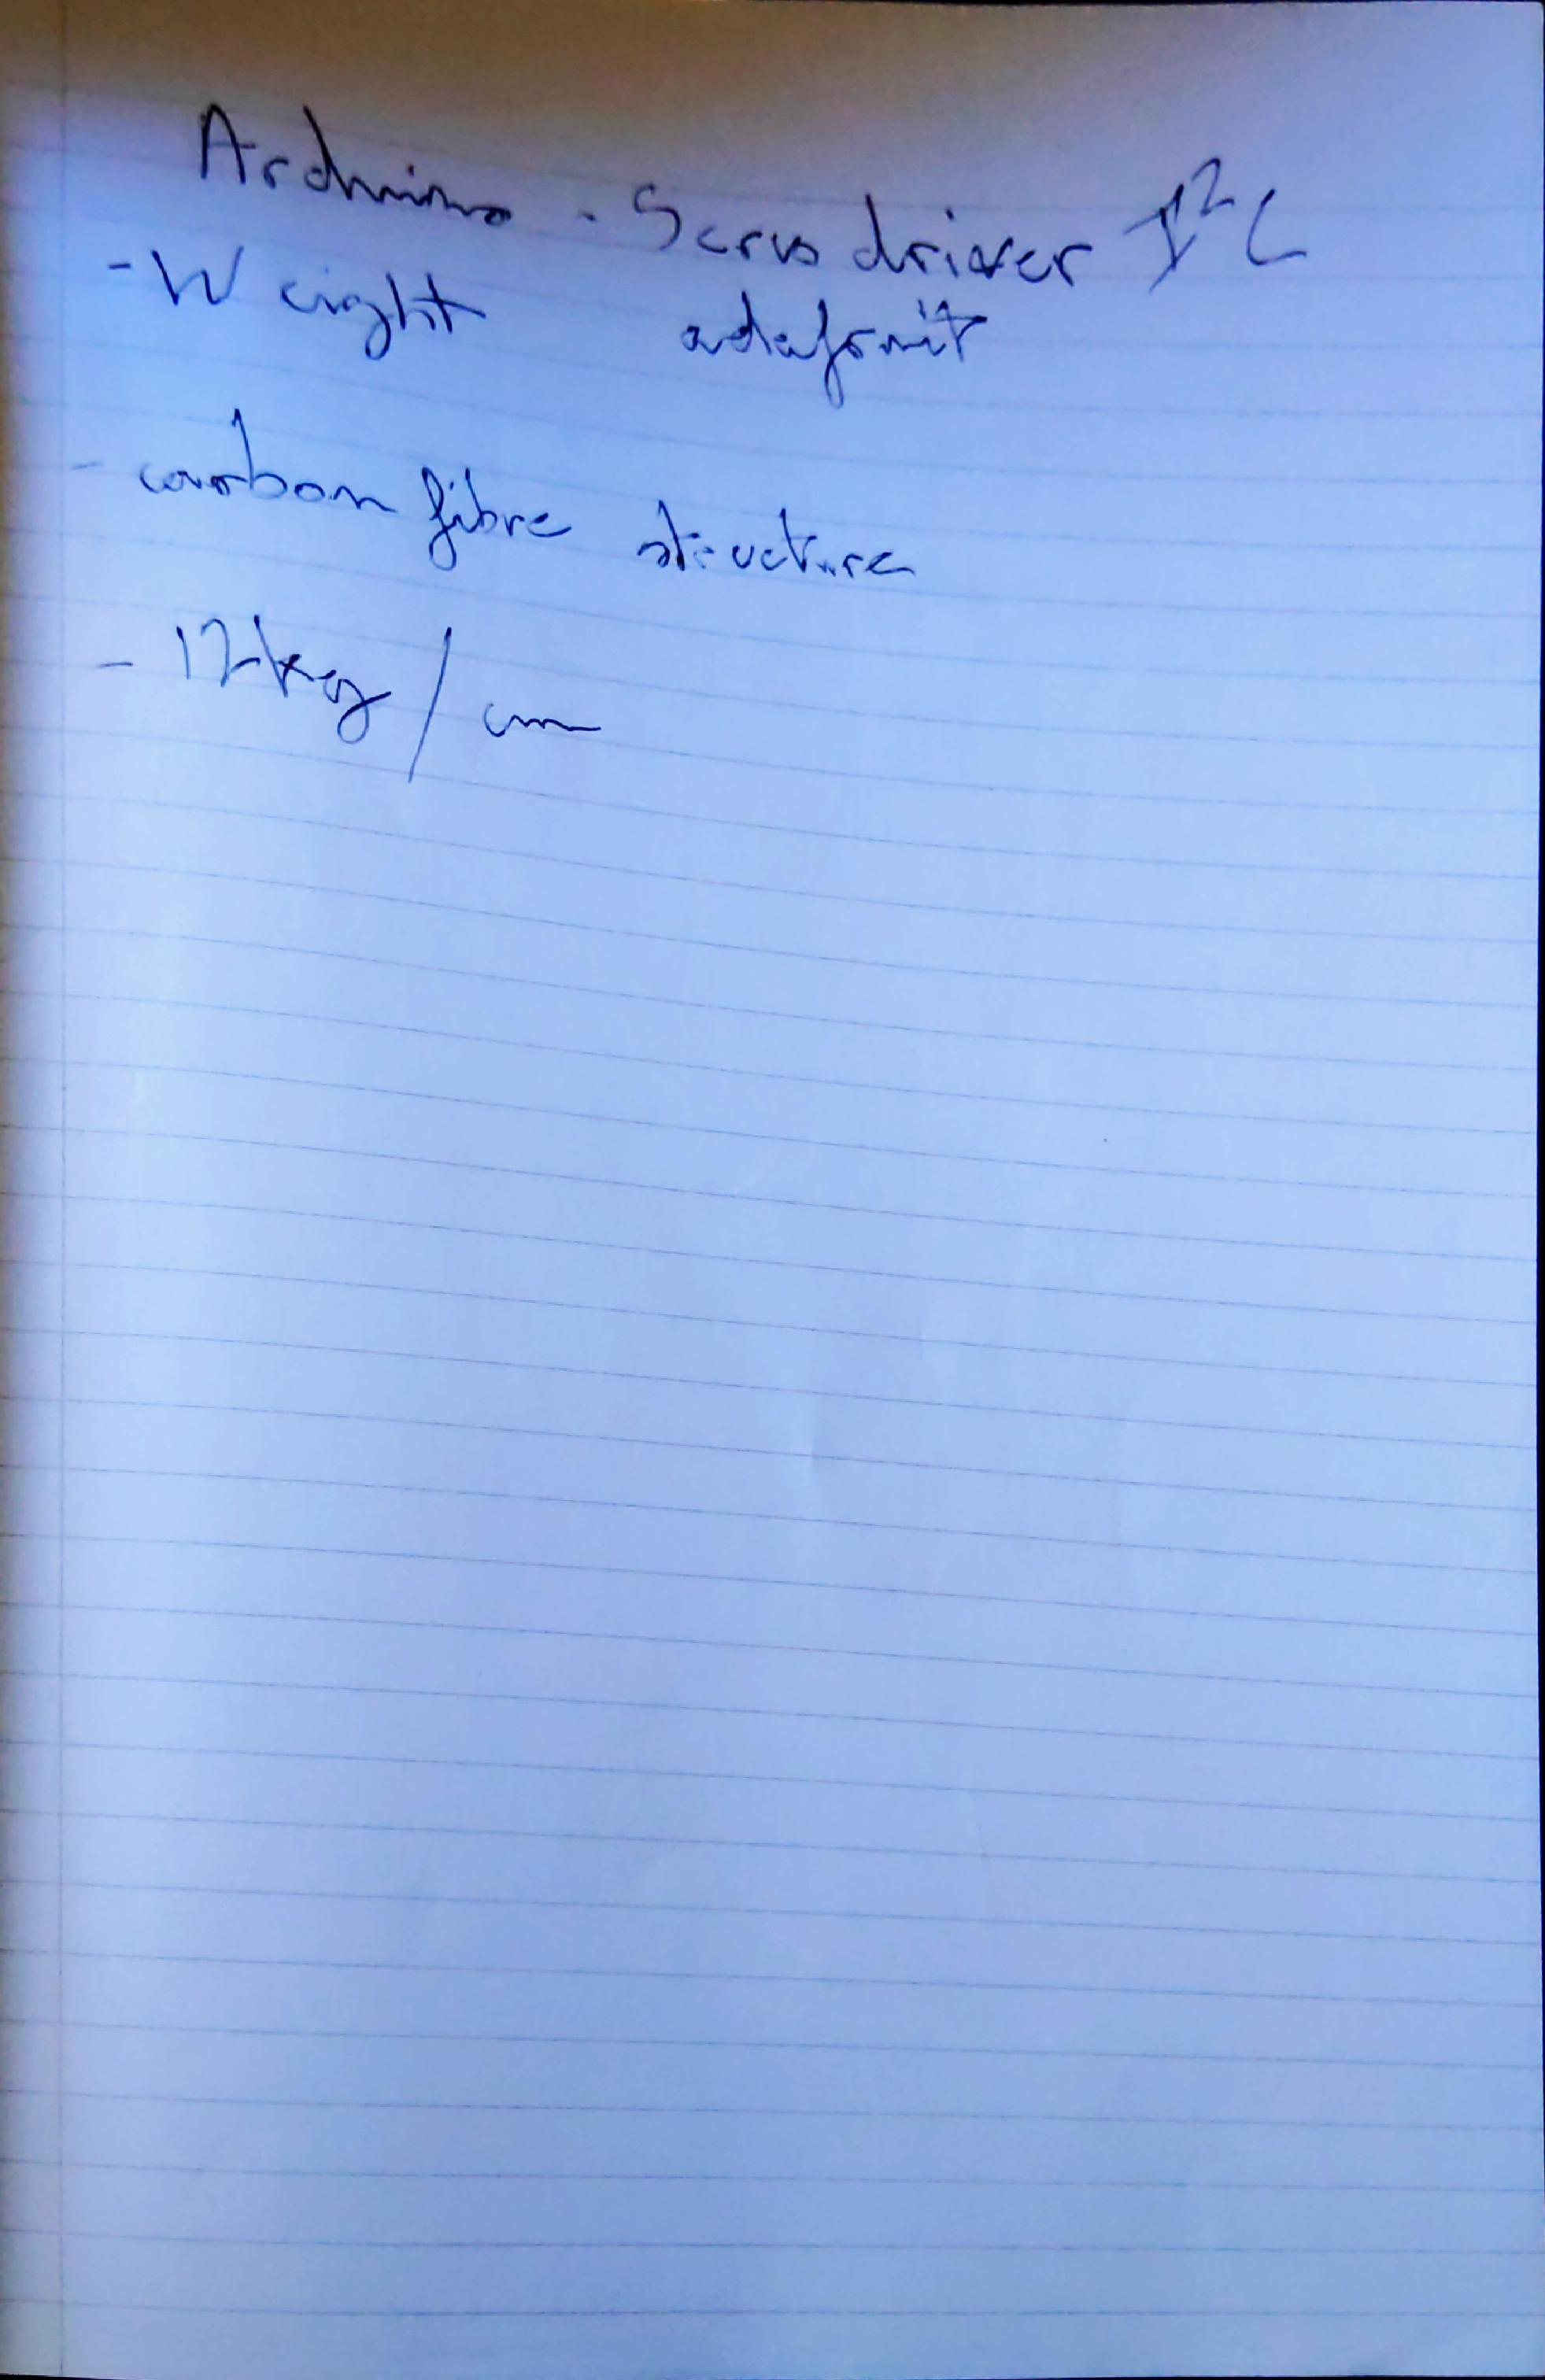 Arduino - Servo driver I²C
- Weight adafruit
- carbon fibre structure
- 12kg/cm